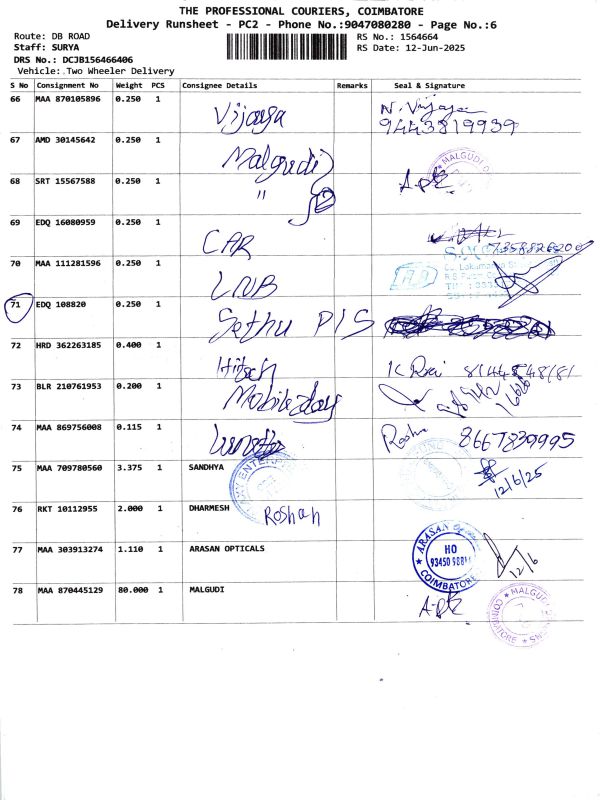 THE PROFESSIONAL COURIERS, COIMBATORE
Delivery Runsheet - PC2 - Phone No.:9047080280 - Page No.:6
Route: DB ROAD
Staff: SURYA
DRS No.: DCJB156466406
Vehicle: Two Wheeler Delivery
RS No.: 1564664
RS Date: 12-Jun-2025
S No Consignment No Weight PCS Consignee Details Remarks Seal & Signature
66 MAA 870105896 0.250 1 Vijaya N. Vijaya
9443819939
67 AMD 30145642 0.250 1 Malgudi
68 SRT 15567588 0.250 1 "
69 EDQ 16080959 0.250 1 CAR
70 MAA 111281596 0.250 1 LNB
71 EDQ 108820 0.250 1 Sethu P/S
72 HRD 362263185 0.400 1 Hitech
73 BLR 210761953 0.200 1 Mobile day
74 MAA 869756008 0.115 1 8667839995
75 MAA 709780560 3.375 1 SANDHYA
12/6/25
76 RKT 10112955 2.000 1 DHARMESH Roshan
77 MAA 303913274 1.110 1 ARASAN OPTICALS
ARASAN
HO
COIMBATORE
12/6
78 MAA 870445129 80.000 1 MALGUDI
MALGUDI
COIMBATORE